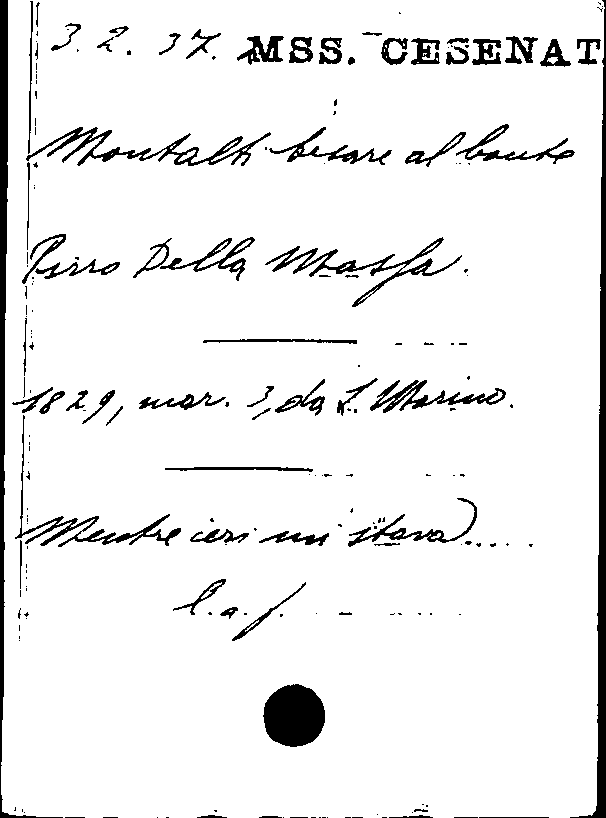 3. 2. 37. MSS. CESENAT.
Montalti Cesare al Conte
Pirro Della Massa.
1829, mar. 3, da S. Marino.
Mentre ieri mi stava.....
l. a. f.